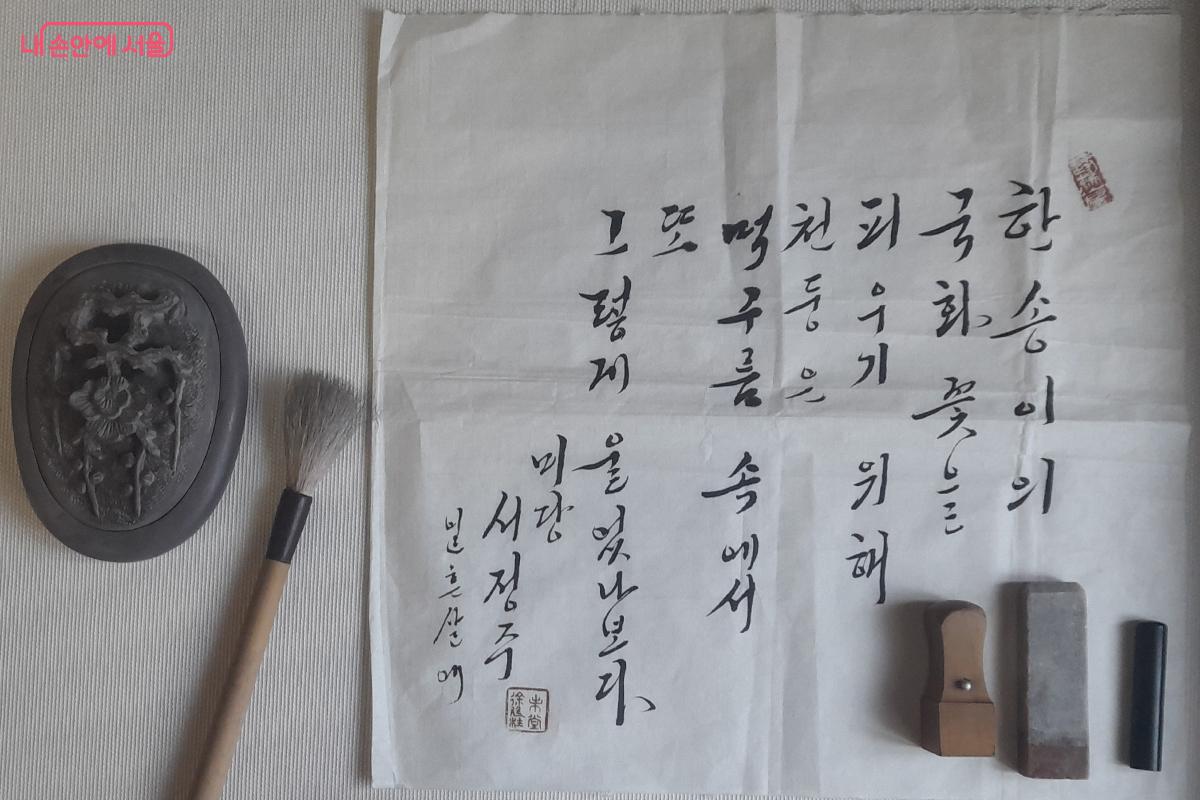 내 손안에 서울
한 송이의
국화 꽃을
피우기 위해
천둥은
먹구름 속에서
또
그렇게 울었나보다
미당
서정주
일흔살에
未堂
徐廷柱